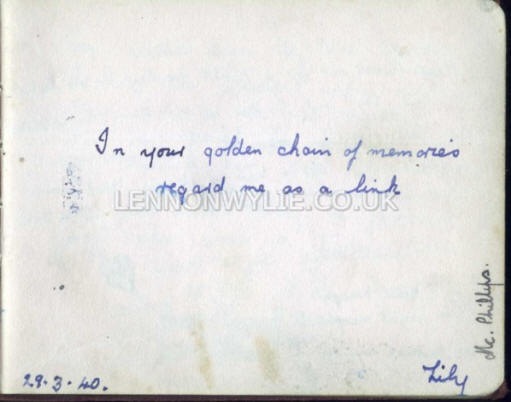 In your golden chain of memories
regard me as a link
LENNONWYLIE.CO.UK
Mc. Phillips.
29.3.40.
Lily